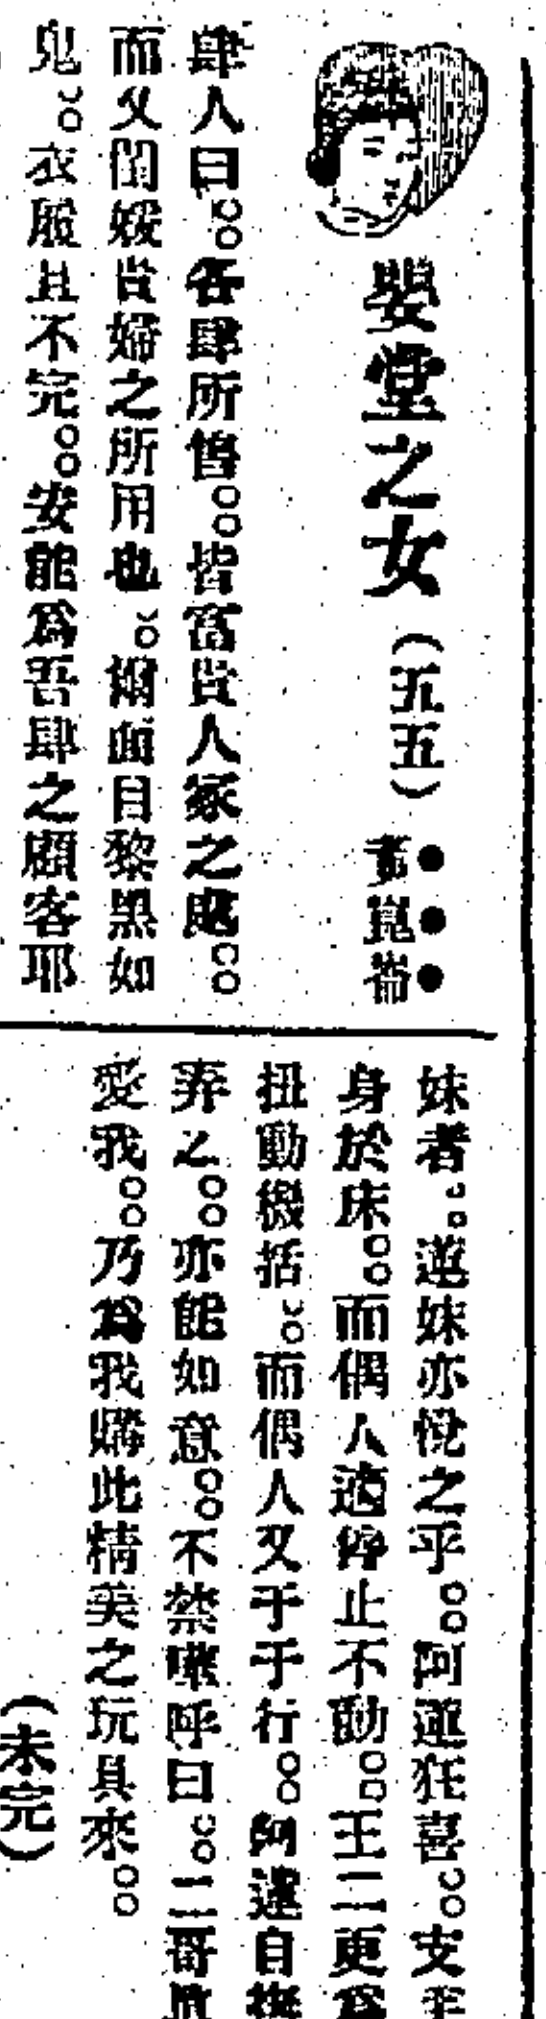 嬰堂之女（五五）
黃崑崙
肆人曰。各肆所售。皆富貴人家之
而又閨媛貴婦之所用也。爾面目黎黑如
鬼。衣履且不完。安能爲吾肆之顧客耶
妹者。蓮妹亦悅之乎。阿蓮狂喜。支
身於床。而偶人適停止不動。王二更爲
扭動機括。而偶人又于于行。阿蓮自
弄之。亦能如意。不禁歡呼曰。二哥眞
愛我。乃爲我購此精美之玩具來。
（未完）